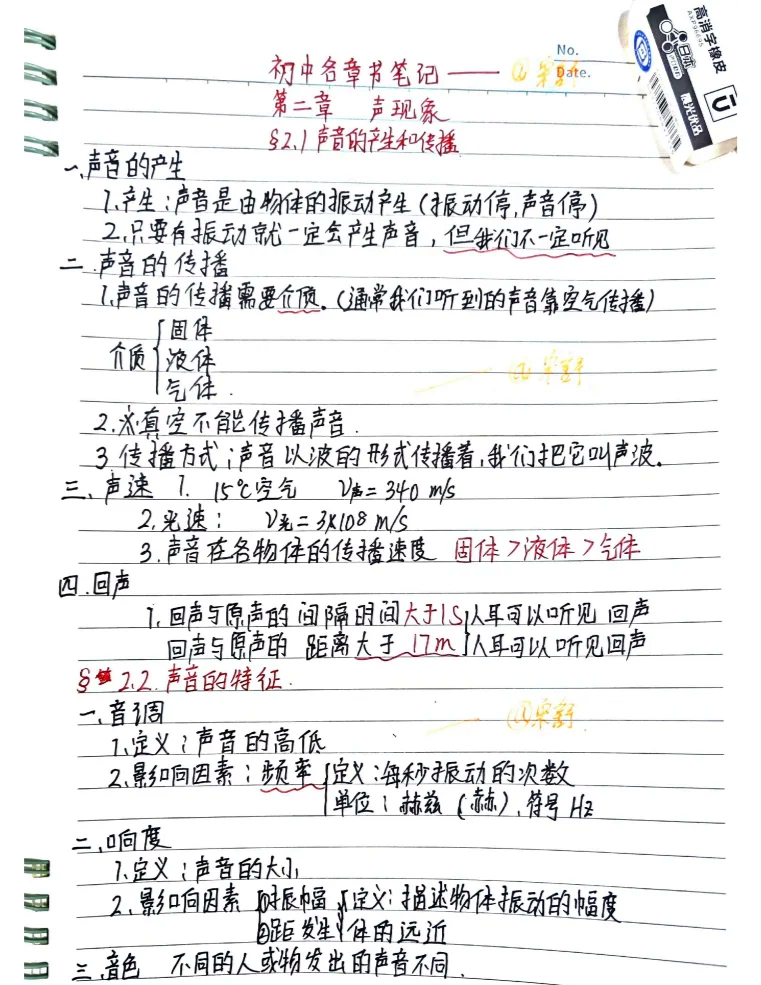 高消字橡皮
AXP96895
日本
晨光优品
No.
Date.
初中各章节笔记——
第二章 声现象
§2.1 声音的产生和传播
一、声音的产生
1.产生:声音是由物体的振动产生(振动停,声音停)
2.只要有振动就一定会产生声音,但我们不一定听见
二.声音的传播
1.声音的传播需要介质。(通常我们听到的声音靠空气传播)
介质
固体
液体
气体.
2.真空不能传播声音.
3.传播方式;声音以波的形式传播着,我们把它叫声波。
三、声速 1. 15℃空气 V声=340 m/s
2.光速: V光=3×108 m/s
3.声音在各物体的传播速度 固体>液体>气体
四.回声
1.回声与原声的间隔时间大于1S人耳可以听见回声
回声与原声的 距离大于17m 人耳可以听见回声
§ 2.2.声音的特征.
一、音调
1.定义;声音的高低
2.影响因素:频率 定义:每秒振动的次数
单位:赫兹(赫),符号Hz
二、响度
1.定义;声音的大小
2.影响因素 ①振幅 定义:描述物体振动的幅度
②距发生体的远近
三.音色 不同的人或物发出的声音不同.